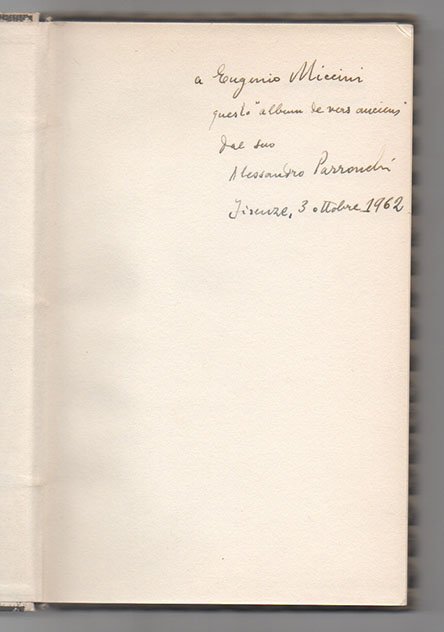 a Eugenio Miccini
questo "album de vers anciens"
dal suo
Alessandro Parronchi
Firenze, 3 ottobre 1962